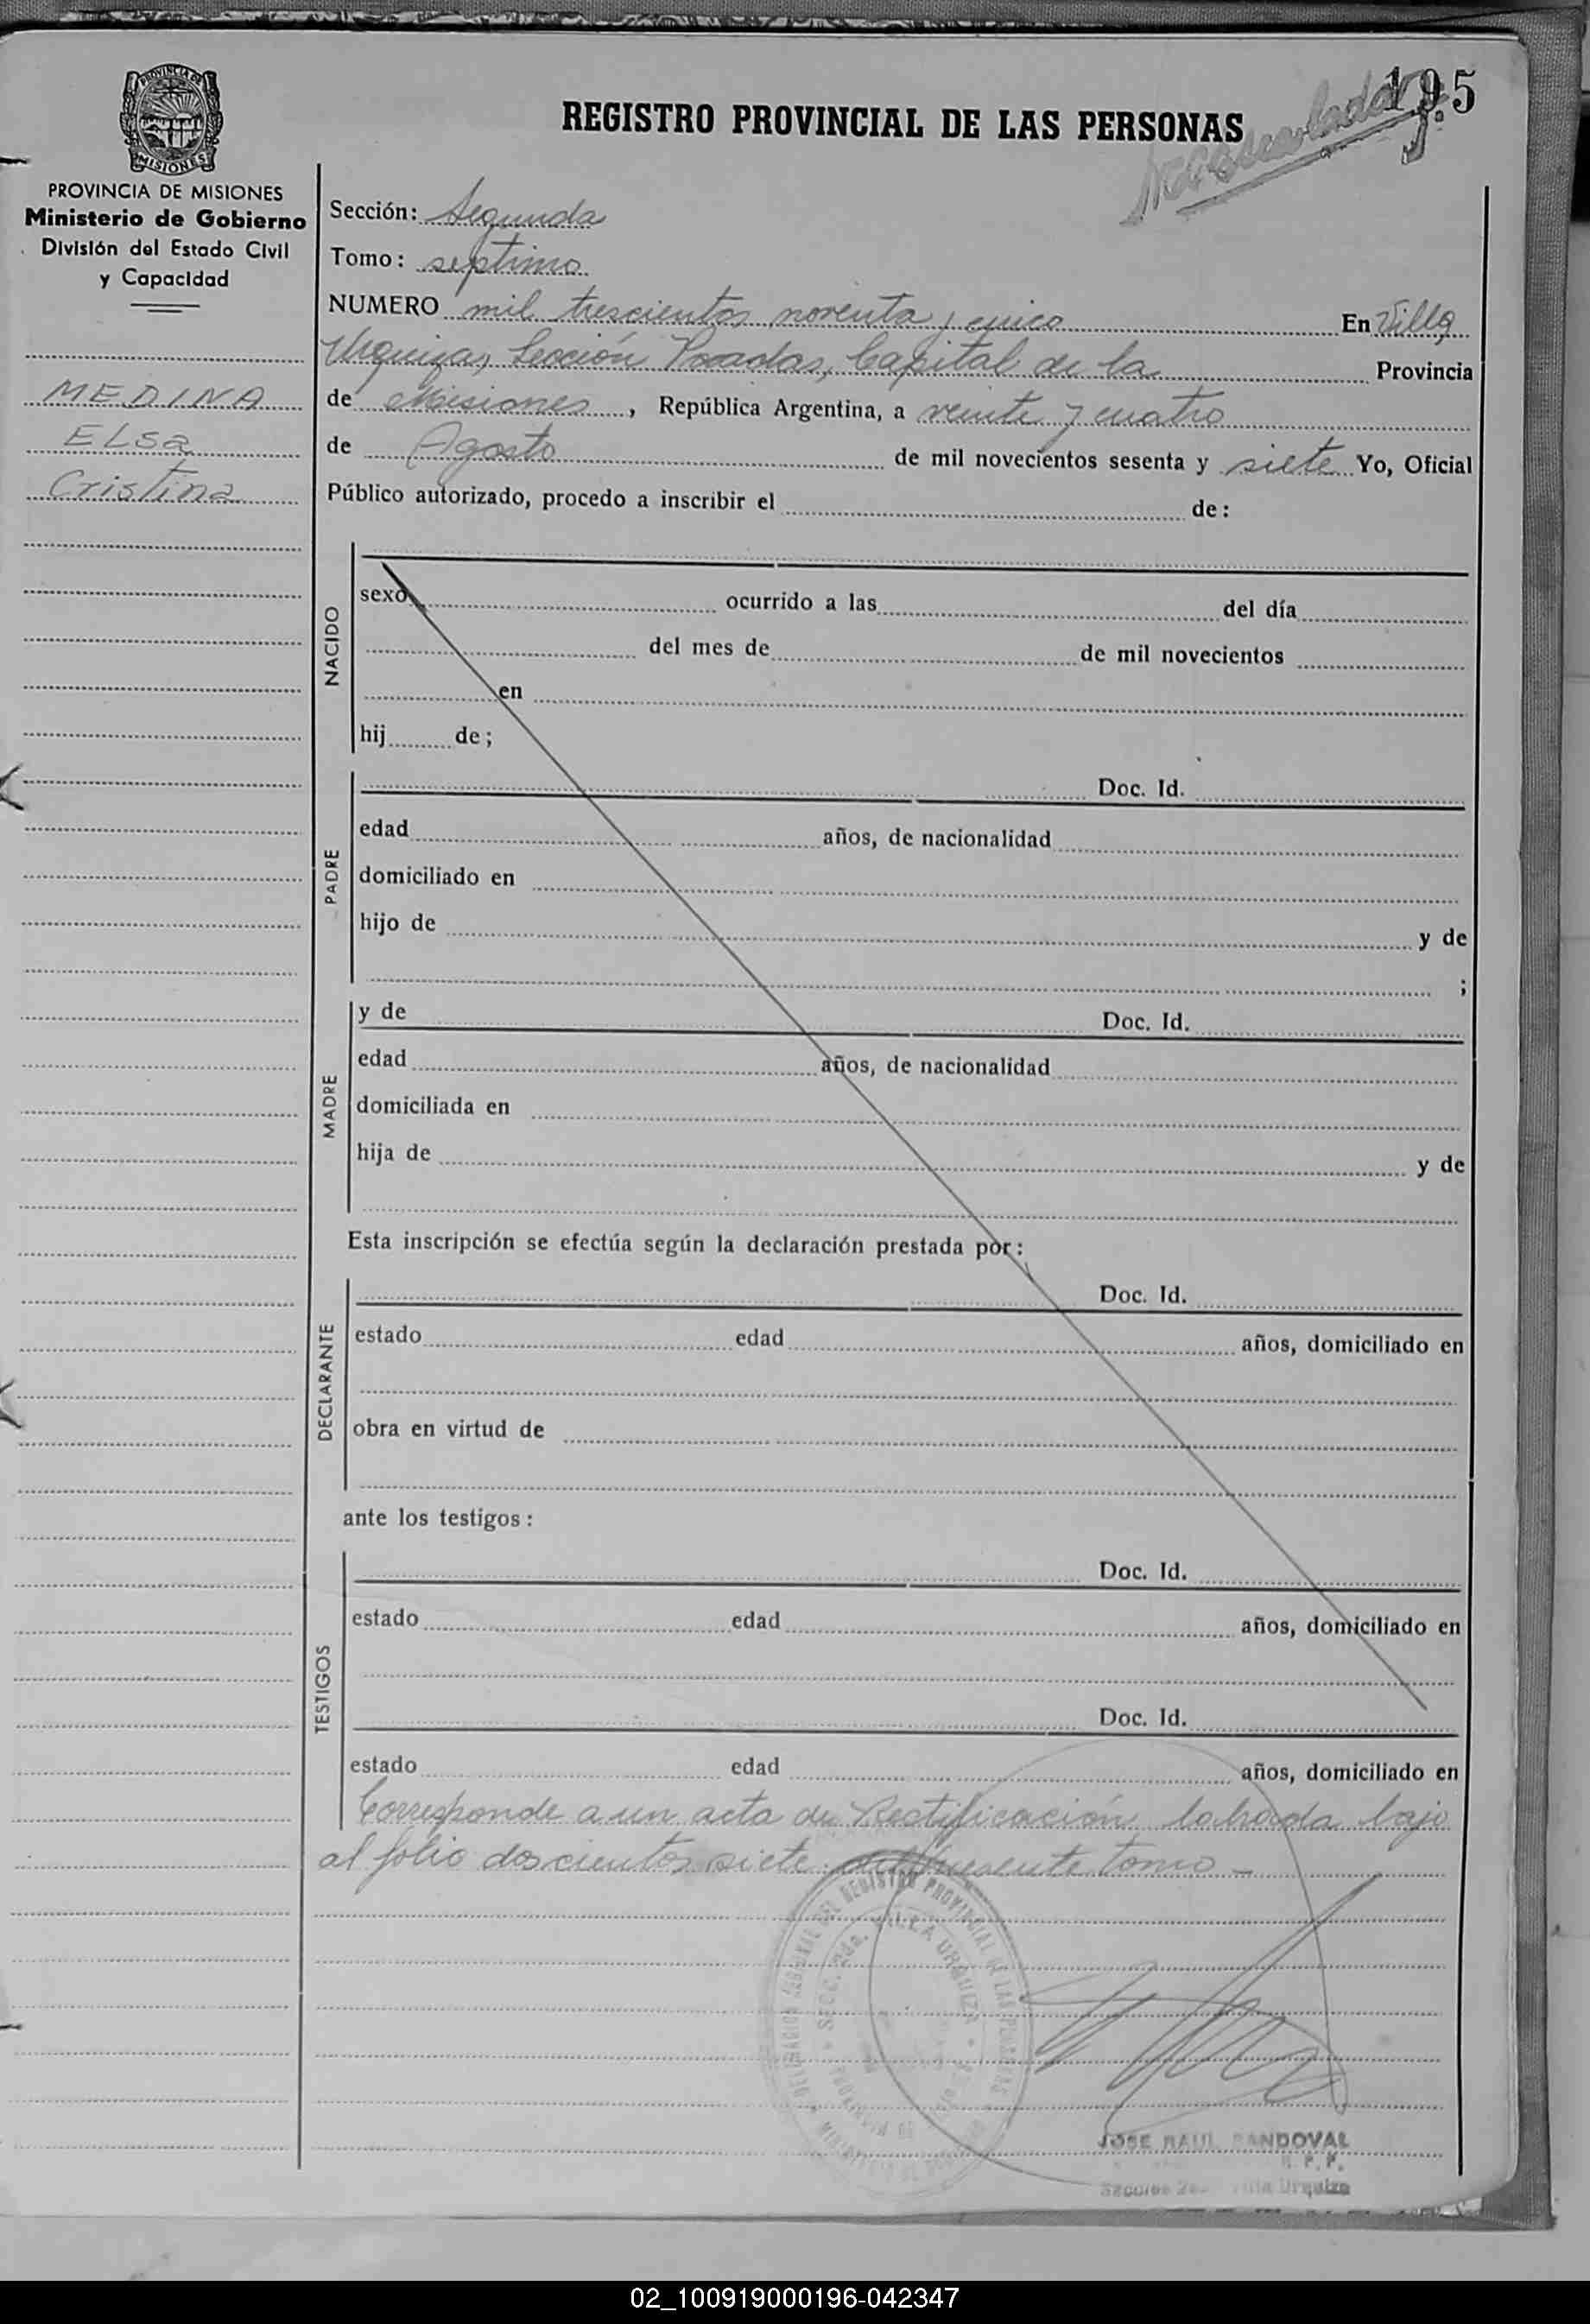 195
REGISTRO PROVINCIAL DE LAS PERSONAS
PROVINCIA DE
MISIONES
PROVINCIA DE MISIONES
Ministerio de Gobierno
División del Estado Civil
y Capacidad
MEDINA
ELSa
Cristina
Sección: Segunda
Tomo: septimo
NUMERO mil trescientos noventa y cinco En Villa
Urquiza, Sección Posadas, Capital de la Provincia
de Misiones, República Argentina, a veinte y cuatro
de Agosto de mil novecientos sesenta y siete Yo, Oficial
Público autorizado, procedo a inscribir el de:
NACIDO
sexo ocurrido a las del día
del mes de de mil novecientos
en
hij de;
PADRE
Doc. Id.
edad años, de nacionalidad
domiciliado en
hijo de y de
;
MADRE
y de Doc. Id.
edad años, de nacionalidad
domiciliada en
hija de y de
Esta inscripción se efectúa según la declaración prestada por:
DECLARANTE
Doc. Id.
estado edad años, domiciliado en
obra en virtud de
ante los testigos:
TESTIGOS
Doc. Id.
estado edad años, domiciliado en
Doc. Id.
estado edad años, domiciliado en
Corresponde a un acta de Rectificación labrada bajo
al folio doscientos siete del presente tomo –
REGISTRO PROVINCIAL DE LAS PERSONAS
SECC. 2da. VILLA URQUIZA
JOSE RAUL SANDOVAL
Urquiza
02_100919000196-042347